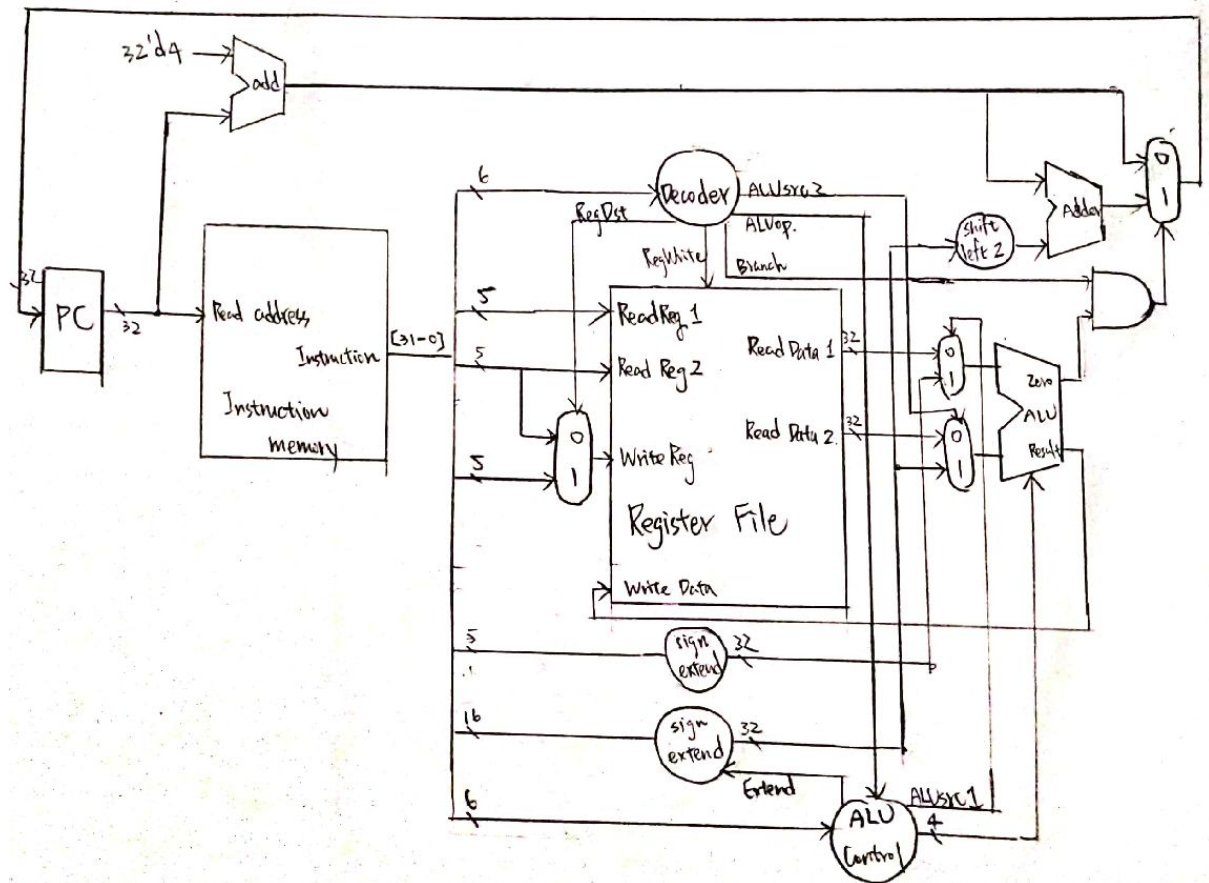 32'd4
add
6
Decoder
ALUsrc2
RegDst
ALUop.
RegWrite
Branch
shift
left 2
Adder
0
1
32
PC
32
Read address
Instruction
[31-0]
Instruction
memory
5
Read Reg 1
5
Read Reg 2
0
1
5
Write Reg
Register File
Write Data
Read Data 1
32
Read Data 2
32
0
1
0
1
Zero
ALU
Result
5
sign
extend
32
16
sign
extend
32
Extend
6
ALU
Control
ALUsrc1
4